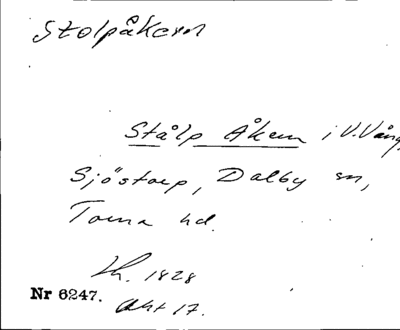 Stolpåkern
Stålp Åkern i V. Vång,
Sjöstorp, Dalby sn,
Torna hd.
1828
Nr 6247. Akt 17.